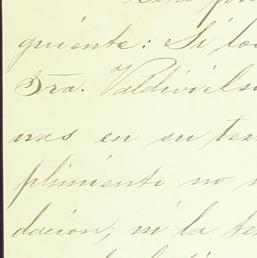 guiente: Si los
Sra. Valdiviels
nas en su tes
plimiento no
dacion; ni la te